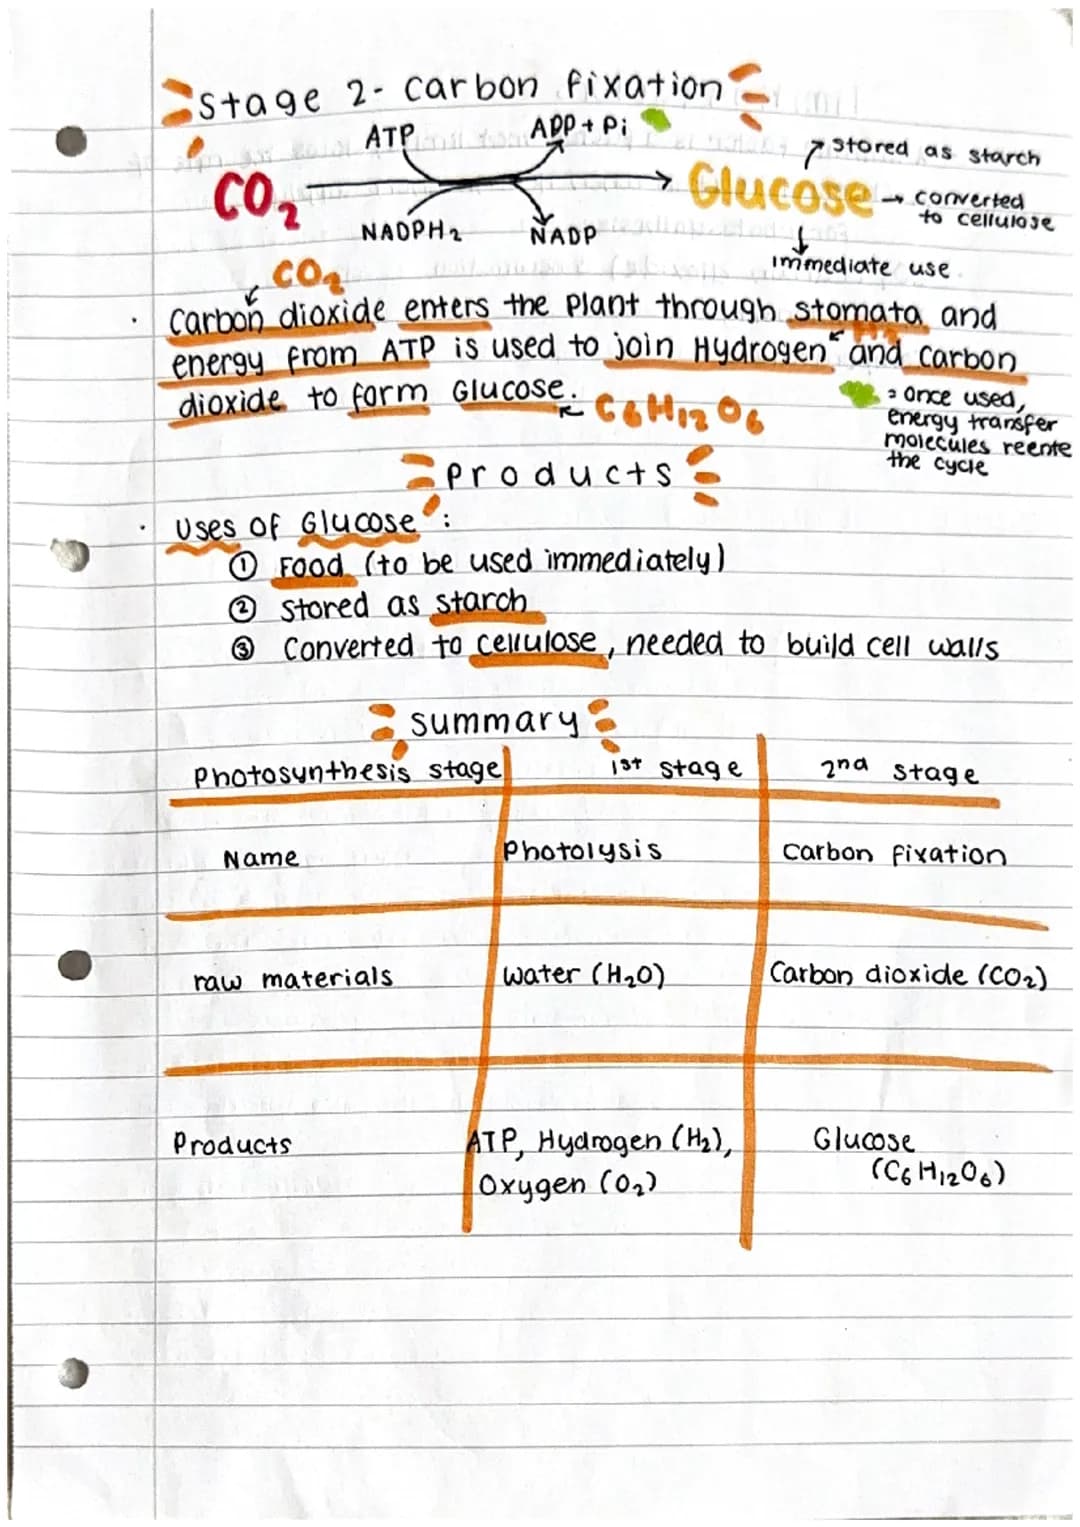 Stage 2- carbon fixation
ATP
ADP + Pi
stored as starch
CO2
Glucose
converted
to cellulose
NADPH2
NADP
immediate use
CO2
Carbon dioxide enters the plant through stomata and
H2
energy from ATP is used to join Hydrogen and carbon
dioxide to form Glucose.
C6H12O6
= Once used,
energy transfer
molecules reente
the cycle
Products
Uses of Glucose :
① Food (to be used immediately)
② Stored as starch
③ Converted to cellulose, needed to build cell walls
Summary
Photosynthesis stage 1st stage 2nd stage
Name Photolysis Carbon fixation
raw materials Water (H2O) Carbon dioxide (CO2)
Products ATP, Hydrogen (H2), Glucose
Oxygen (O2) (C6H12O6)